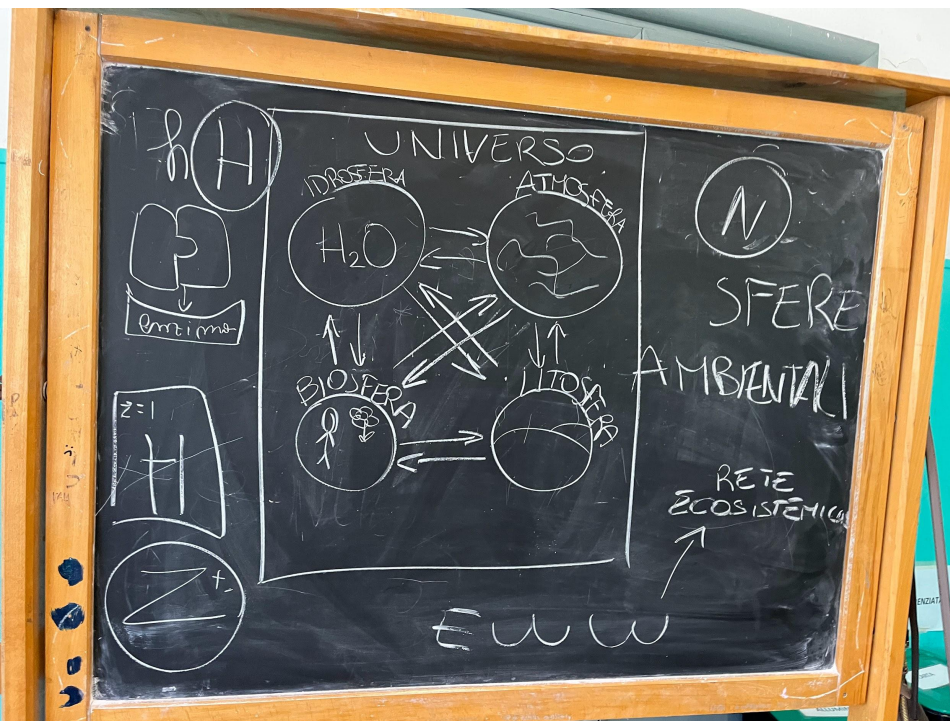 h H
enzima
z=1
H
Z+-
UNIVERSO
IDROSFERA
H₂O
ATMOSFERA
BIOSFERA
LITOSFERA
N
SFERE
AMBIENTALI
RETE
ECOSISTEMICA
EWW
ENZIATA